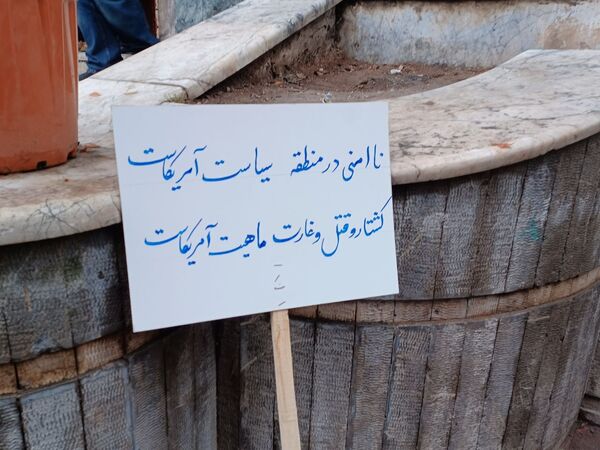 نا امنی در منطقه سیاست آمریکاست
کشتار و قتل و غارت ماهیت آمریکاست